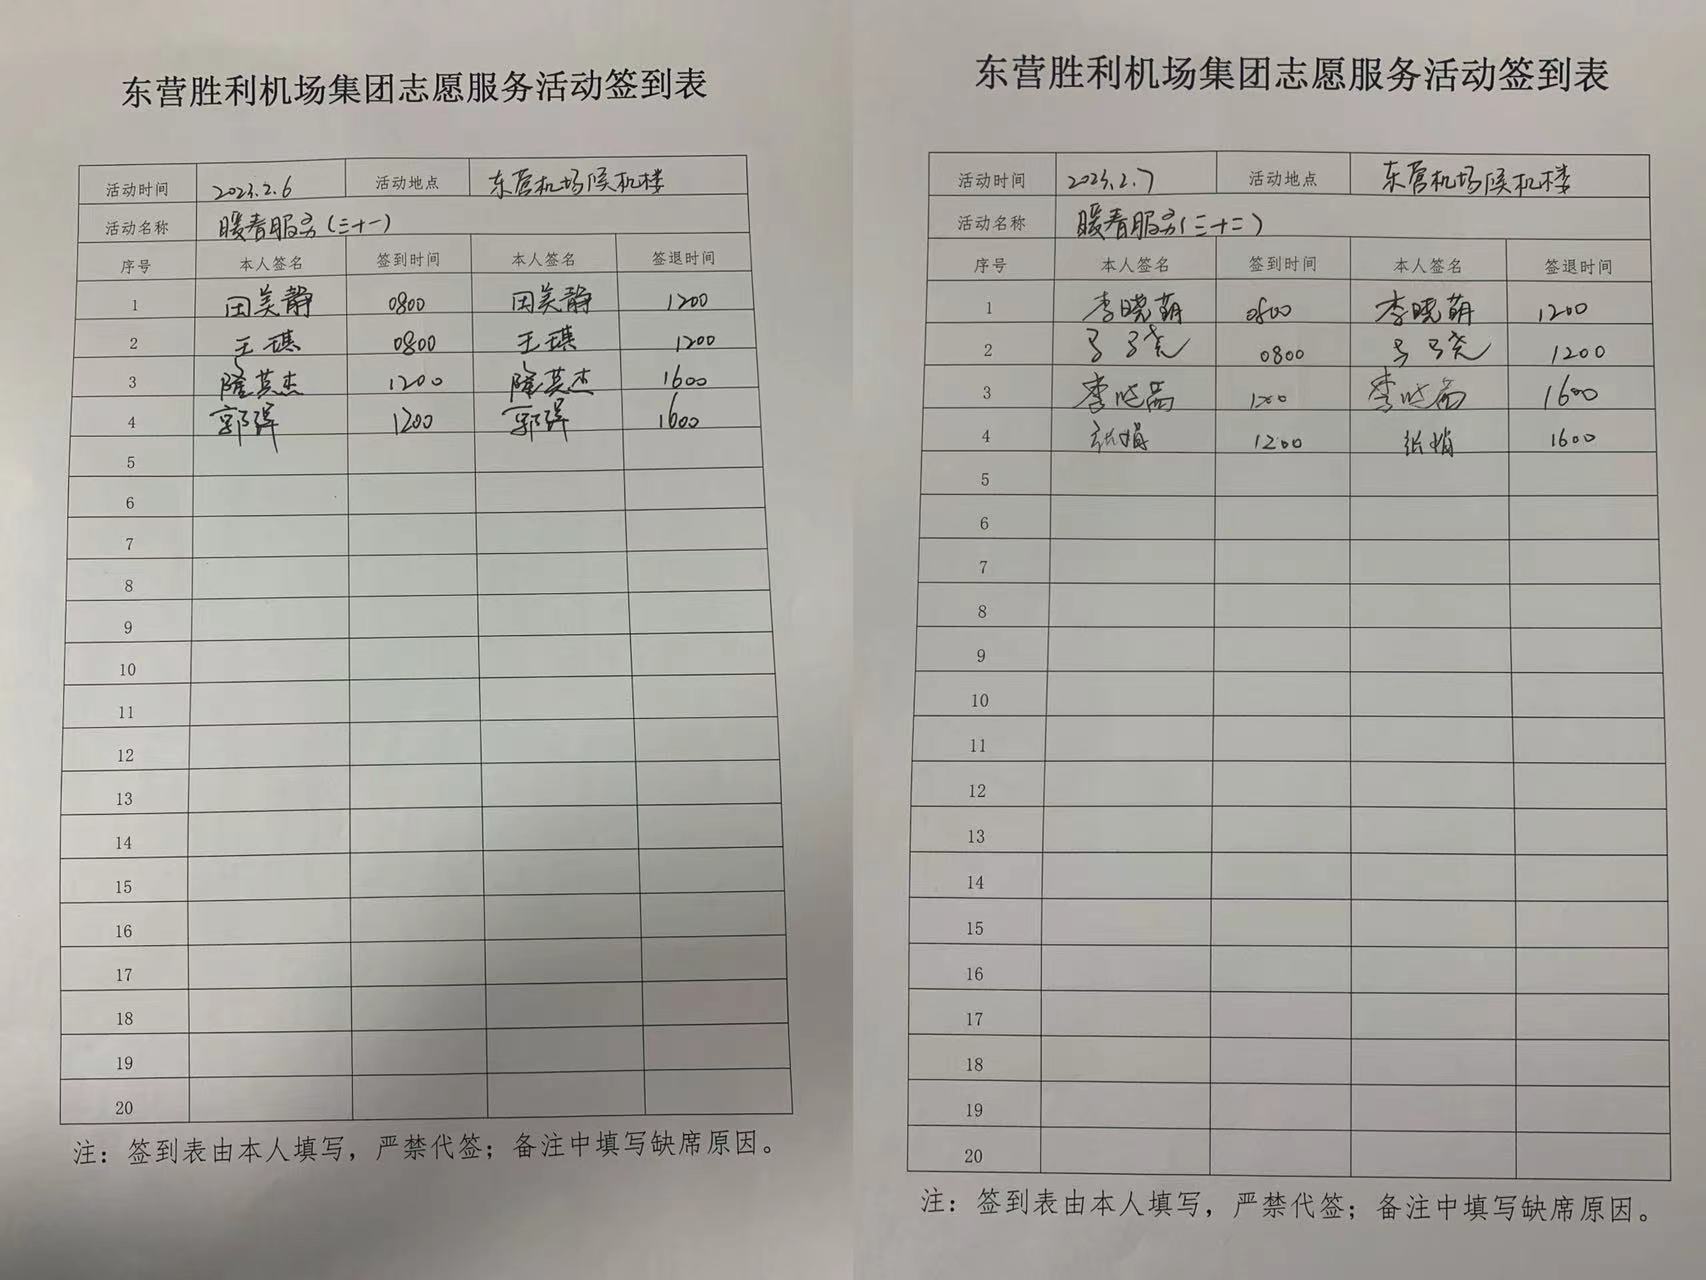 东营胜利机场集团志愿服务活动签到表
活动时间 2023.2.6 活动地点 东营机场候机楼
活动名称 暖春服务(三十一)
序号 本人签名 签到时间 本人签名 签退时间
1 田美静 0800 田美静 1200
2 王琪 0800 王琪 1200
3 隆英杰 1200 隆英杰 1600
4 郭强 1200 郭强 1600
5
6
7
8
9
10
11
12
13
14
15
16
17
18
19
20
注：签到表由本人填写，严禁代签；备注中填写缺席原因。
东营胜利机场集团志愿服务活动签到表
活动时间 2023.2.7 活动地点 东营机场候机楼
活动名称 暖春服务(三十二)
序号 本人签名 签到时间 本人签名 签退时间
1 李晓萌 0800 李晓萌 1200
2 0800 1200
3 1200 1600
4 1200 1600
5
6
7
8
9
10
11
12
13
14
15
16
17
18
19
20
注：签到表由本人填写，严禁代签；备注中填写缺席原因。